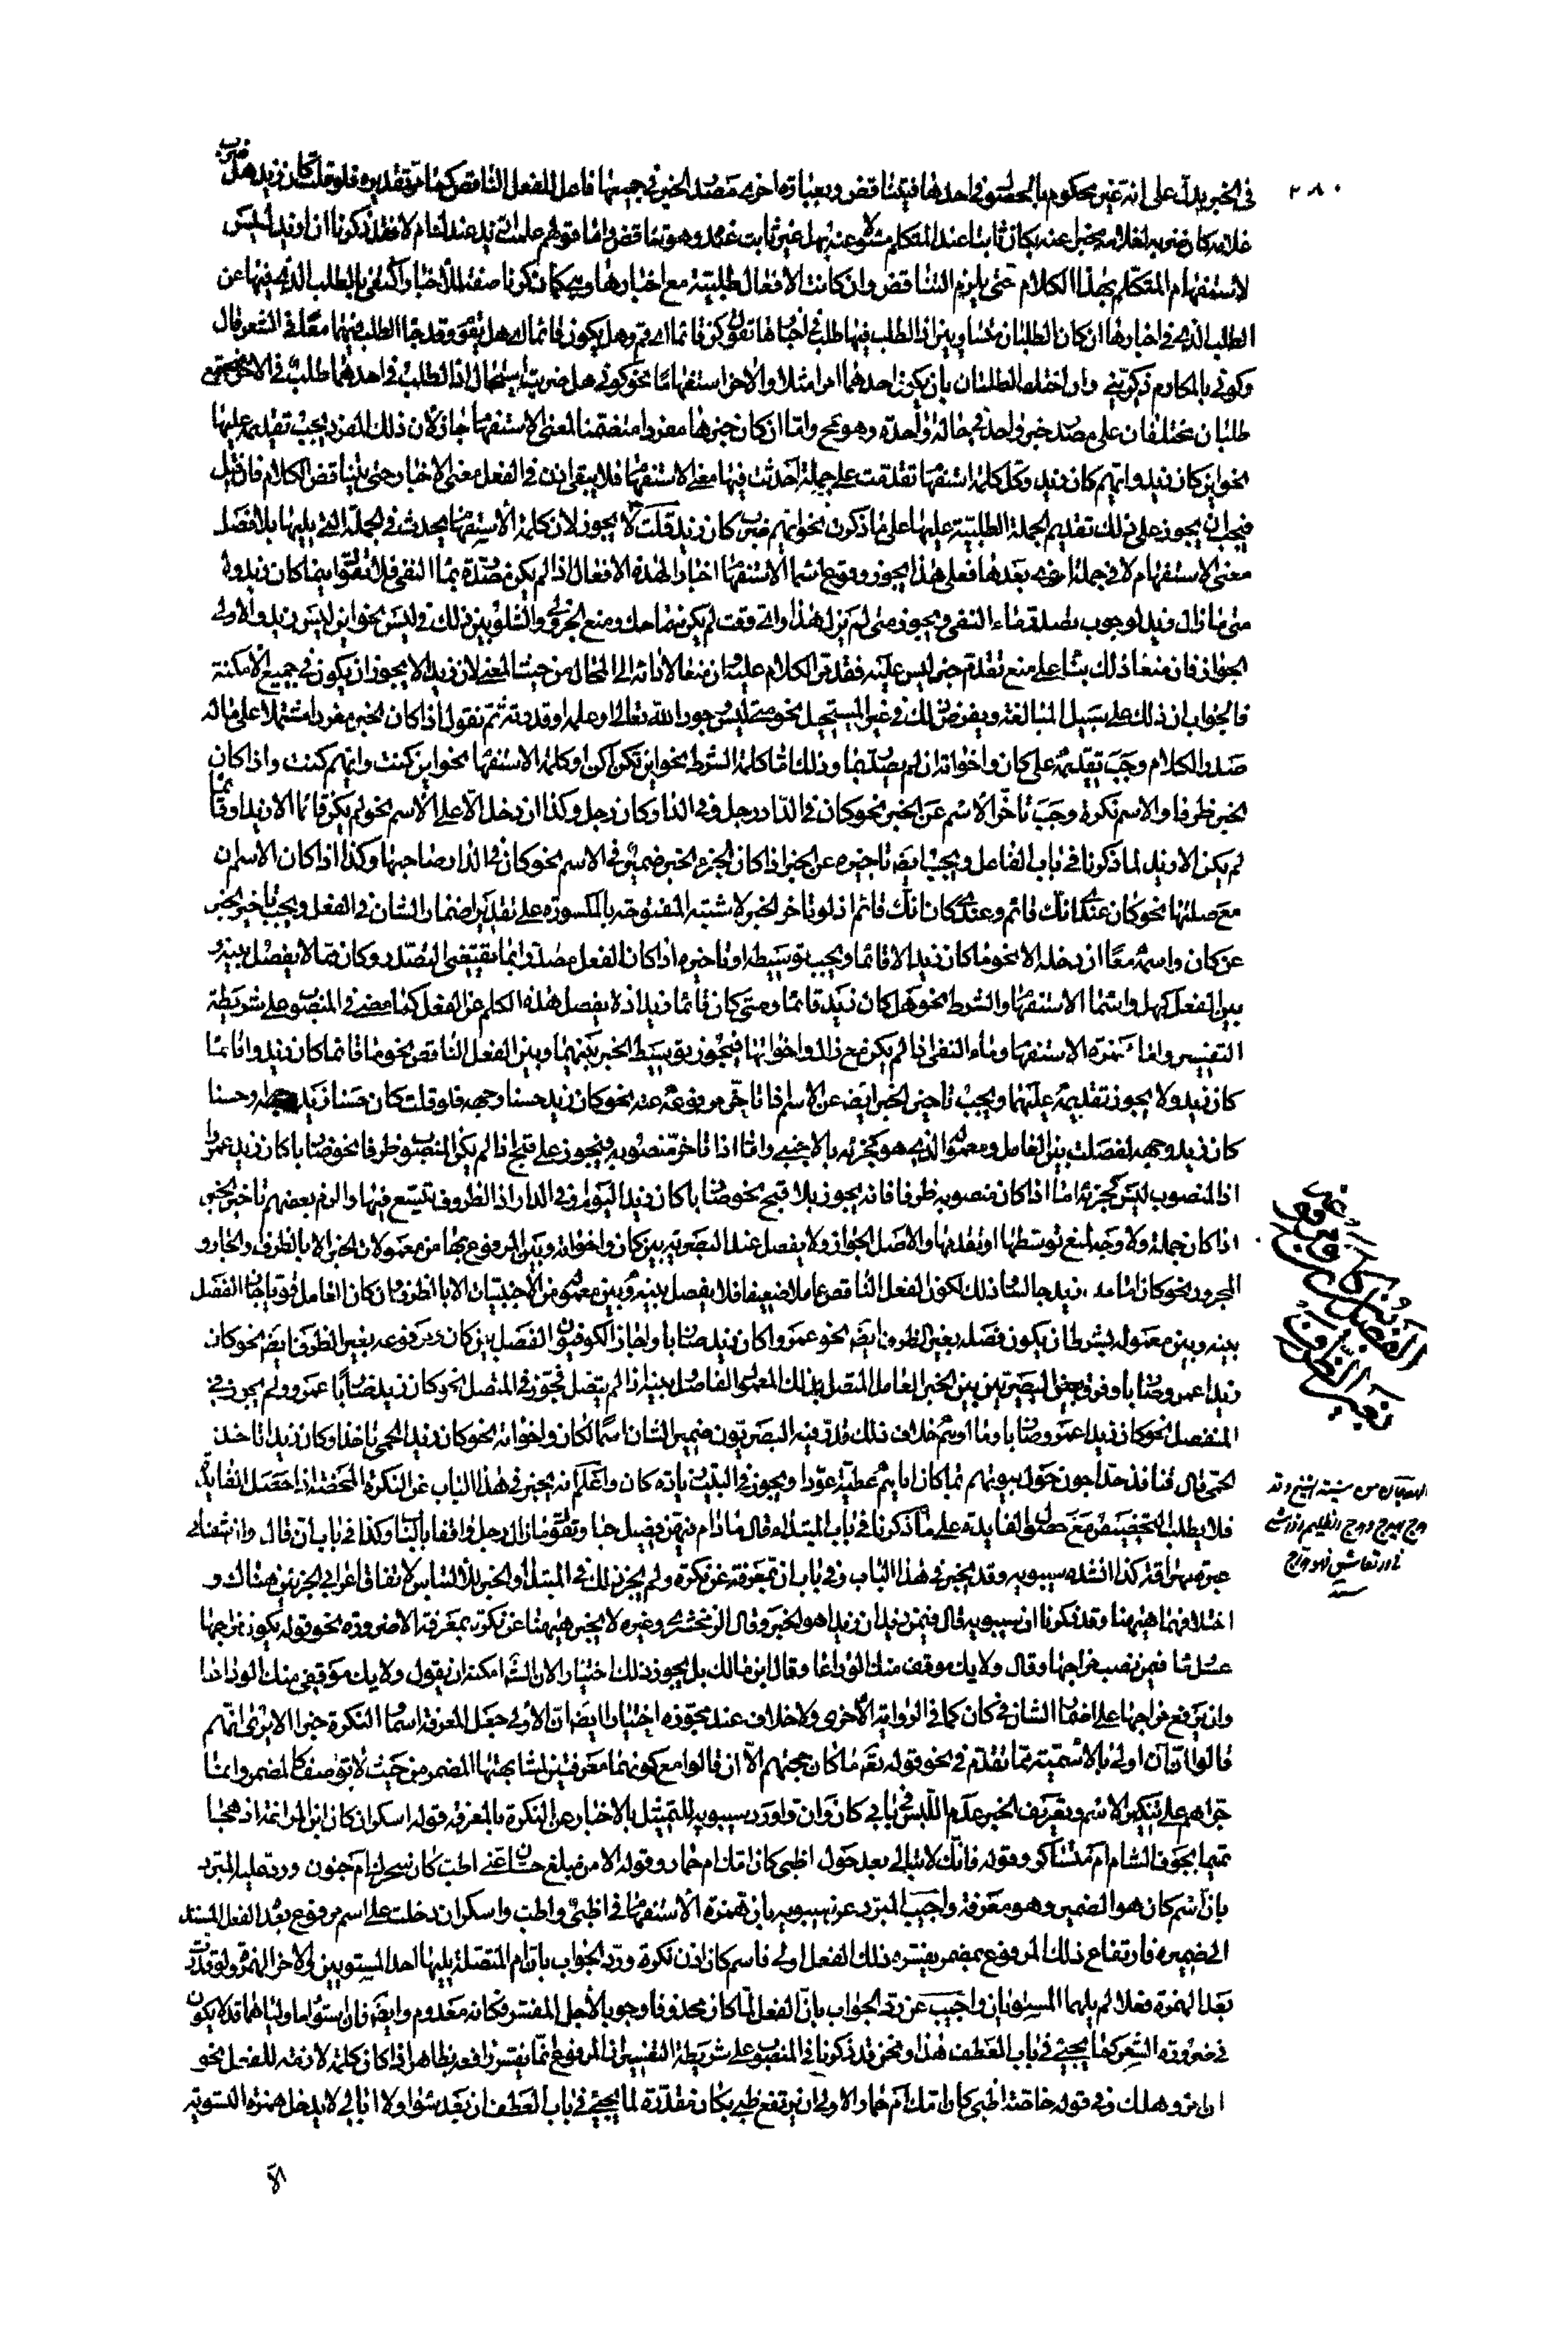 ٢٨٠
في الخبر يدل على انه غير محكوم بالحصول في احدها فيتناقض وبعبارة اخرى مصدر الخبر في جميعها فاعل للفعل الناقص كما مر تقديره فلو قلت كان زيد هل ضرب
غلامه كان ضربه لغلامه مخبرا عنه بكان ثابتا عند المتكلم مسئولا عنه بهل غير ثابت عنده وهو تناقض واما قولهم علمت ازيد عندك ام لا فقد ذكرنا ان ازيد ليس
لاستفهام المتكلم بهذا الكلام حتى يلزم التناقض وان كانت الافعال طلبية مع اخبارها وهي كما ذكرنا صفة للاخبار اكتفى بالطلب الذي فيها عن
الطلب الذي في اخبارها ان كان الطلبان متساويين اذ الطلب فيها طلب في اخبارها تقول كن قائما اي قم وهل يكون قائما اي هل يقوم وقد جاء الطلب فيهما معا في الشعر قال
وكوني بالمكارم ذكريني وان اختلف الطلبان بان يكون احدهما امرا مثلا والاخر استفهاما نحو كوني هل ضربت استحال اذ الطلب في احدهما طلب في الاخر فيجتمع
طلبان مختلفان على مصدر خبر واحد في حالة واحدة وهو محال واما ان كان خبرها مفردا متضمنا لمعنى الاستفهام جاز لان ذلك المفرد يجب تقديمه عليها
نحو اين كان زيد وايهم كان زيد وكل كلمة استفهام تقدمت على جملة احدثت فيها معنى الاستفهام فلا يبقى اذن في الفعل معنى الاخبار حتى يتناقض الكلام فان قيل
فيجب ان يجوز على ذلك تقديم الجملة الطلبية عليها على ما ذكرت نحو ايهم ضرب كان زيد قلت لا يجوز لان كلمة الاستفهام يحدث في الجملة التي يليها بلا فصل
معنى الاستفهام لا في جملة اخرى بعدها فعلى هذا يجوز وقوع اسماء الاستفهام اخبارا لهذه الافعال اذا لم يكن مصدرة بما النفي فلا تقول اينما كان زيد ولا
متى ما زال زيد لوجوب تصدر ماء النفي ويجوز متى لم يزل هذا واي وقت لم يكن
الجواز فان منعا ذلك بناء على منع تقدم خبر ليس عليه فقد مر الكلام عليه وان منعا لادائه الى المحال من حيث المعنى لان زيدا لا يجوز ان يكون في جميع الامكنة
فالجواب ان ذلك على سبيل المبالغة ويفرض ذلك في غير المستحيل نحو متى ليس جود الله تعالى او علمه او قدرته ثم نقول اذا كان الخبر مفردا مشتملا على ماله
صدر الكلام وجب تقديمه على كان واخواته ان لم يصدر بما وذلك اما كلمة الشرط نحو اين تكن اكن او كلمة الاستفهام نحو اين كنت وايهم كنت واذا كان
الخبر ظرفا والاسم نكرة وجب تاخر الاسم عن الخبر نحو كان في الدار رجل وفي الدار كان رجل وكذا ان دخل الا على الاسم نحو لم يكن قائما الا زيد او قائما
لم يكن الا زيد لما ذكرنا في باب الفاعل ويجب ايضا تاخيره عن الخبر اذا كان لجزء الخبر ضمير في الاسم نحو كان في الدار صاحبها وكذا اذا كان الاسم ان
مع صلتها نحو كان عندي انك قائم وعندي كان انك قائم اذ لو تاخر الخبر لاشتبه المفتوحة بالمكسورة على تقدير اضمار الشان في الفعل ويجب تاخير الخبر
عن كان واسمه معا ان دخله الا نحو ما كان زيد الا قائما ويجب توسيطه او تاخيره اذا كان الفعل مصدرا بما يقتضي التصدر وكان مما لا يفصل بينه و
بين الفعل كهل واسماء الاستفهام والشرط نحو هل كان زيد قائما ومتى كان قائما زيد اذ لا يفصل هذه الكلم عن الفعل كما مضى في المنصوب على شريطة
التفسير واما همزة الاستفهام وماء النفي اذا لم يكن مع زال واخواتها فيجوز توسيط الخبر بينهما وبين الفعل الناقص نحو ما قائما كان زيد واقائما
كان زيد ولا يجوز تقديمه عليهما ويجب تاخير الخبر ايضا عن الاسم اذا تاخر مرفوعه عنه نحو كان زيد حسنا وجهه فلو قلت كان حسنا زيد وجهه وحسنا
كان زيد وجهه لفصلت بين العامل ومعموله الذي هو كجزئه بالاجنبي واما اذا تاخر منصوبه فيجوز على قبح اذا لم يكن المنصوب ظرفا نحو ضاربا كان زيد عمرا
اذ المنصوب ليس كجزئه اما اذا كان منصوبه ظرفا فانه يجوز بلا قبح نحو ضاربا كان زيد اليوم وفي الدار اذ الظروف يتسع فيها والزم بعضهم تاخير الخبر
اذا كان جملة ولا وجه لمنع توسطها او تقدمها والاصل الجواز ولا يفصل عند البصرية بين كان واخواته وبين المرفوع بها من معمولات الخبر الا بالظرف والجار و
المجرور نحو كان امامك زيد جالسا ذلك لكون الفعل الناقص عاملا ضعيفا فلا يفصل بينه وبين معموله من الاجنبيات الا بالظرف وان كان العامل قويا جاز الفصل
بينه وبين معموله بشرط ان يكون فصله بغير الظرف ايضا نحو عمروا كان زيد ضاربا واجاز الكوفيون الفصل بين كان ومرفوعه بغير الظرف ايضا نحو كان
زيدا عمرو ضاربا وفرق بعض البصريين بين الخبر العامل المتصل بذلك المعمول الفاصل بينه اذا لم يتصل فجوز في المتصل نحو كان زيدا ضاربا عمرو ولم يجوز في
المنفصل نحو كان زيدا عمرو ضاربا وما اوهم خلاف ذلك قدر فيه البصريون ضمير الشان اسما لكان واخواته نحو كان زيدا الحمى تاخذ او كان زيدا تاخذ
الحمى قال قنافذ هداجون حول بيوتهم بما كان اياهم عطية عودا ويجوز في البيت زيادة كان واعلم انه يخبر في هذا الباب عن النكرة المحضة اذا حصل الفايدة
فلا يطلب التخصيص مع حصول الفايدة على ما ذكرنا في باب المبتداء قال ما دام فيهن فصيل حيا وتقول ما زال رجل واقفا بالباب وكذا في باب ان قال وان شفاي
عبرة مهراقة كذا انشده سيبويه وقد يخبر في هذا الباب وفي باب ان بمعرفة عن نكرة ولم يجز ذلك في المبتدأ والخبر للالتباس لاتفاق اعرابي الجزئين هناك و
اختلافهما هيهنا وقد ذكرنا ان سيبويه قال فيمن زيد ان زيدا هو الخبر وقال الزمخشري وغيره لا يخبر هيهنا عن نكرة بمعرفة الا ضرورة نحو قوله يكون مزاجها
عسل وماء فيمن نصب مزاجها وقال ولا يك موقف منك الوداعا وقال ابن مالك بل يجوز ذلك اختيارا لان الشاعر امكنه ان يقول ولا يك موقفي منك الوداعا
وان يرفع مزاجها على اضمار الشان في كان كما في الرواية الاخرى ولا خلاف عند مجوزه اختيارا ايضا ان الاولى جعل المعرفة اسما والنكرة خبرا الا ترى انهم
قالوا ان ان اولى بالاسمية مما تقدم في نحو قوله تعالى ما كان حجتهم الا ان قالوا مع كونهما معرفتين لمشابهتها المضمر من حيث لا توصف كالمضمر وانما
جراهم على تنكير الاسم وتعريف الخبر عدم اللبس في بابي كان وان واورد سيبويه للتمثيل بالاخبار عن النكرة بالمعرفة قوله اسكران كان ابن المراغة اذ هجا
تميما بجوف الشام ام متساكر وقوله فانك لا تبالي بعد حول اظبي كان امك ام حمار وقوله الا من مبلغ حسان عني اطب كان سحرك ام جنون ورد عليه المبرد
بان اسم كان هو الضمير وهو معرفة واجيب المبرد عن سيبويه بان همزة الاستفهام في اظبي واطب واسكران دخلت على اسم مرفوع بعده الفعل المسند
الى ضميره فارتفاع ذلك المرفوع بمضمر يفسره ذلك الفعل اولى فاسم كان اذن نكرة ورد الجواب بان ام المتصلة يليها احد المستويين والاخر الهمزة ولو قدرت
بعد الهمزة فعلا لم يلهما المستويان واجيب عن رد الجواب بان الفعل لما كان محذوفا وجوبا لاجل المفسر فكانه معدوم وايضا فان استواء ما ولياهما قد لا يكون
في ضرورة الشعر كما يجيئ في باب العطف هذا ونحن قد ذكرنا في المنصوب على شريطة التفسير ان المرفوع انما يفسر رافعه بظاهر اذا كان كلمة لازمة للفعل نحو
ان امرؤ هلك وفي قوله خاصة اظبي كان امك ام حمار الاولى ان يرتفع ظبي بكان مقدرة لما يجيئ في باب العطف ان بعد سواء ولا ابالي لا يدخل همزة التسوية
الا